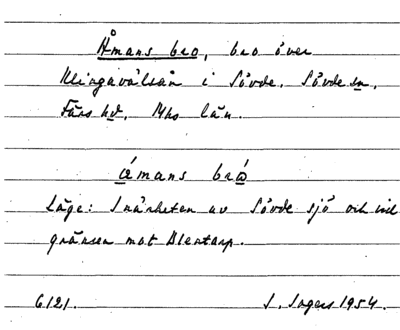 Åmans bro, bro över
Klingavälsån i Sövde, Sövde sn,
Färs hd, Mhs län.
åmans brō
Läge: I närheten av Sövde sjö och vid
gränsen mot Blentarp.
6121. I. Ingers 1954.